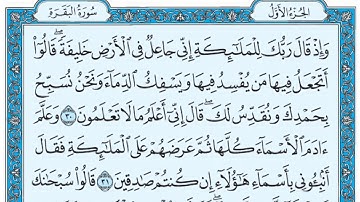 الجزء الأول
سورة البقرة
وَإِذْ قَالَ رَبُّكَ لِلْمَلَٰٓئِكَةِ إِنِّى جَاعِلٌ فِى ٱلْأَرْضِ خَلِيفَةً ۖ قَالُوٓا۟
أَتَجْعَلُ فِيهَا مَن يُفْسِدُ فِيهَا وَيَسْفِكُ ٱلدِّمَآءَ وَنَحْنُ نُسَبِّحُ
بِحَمْدِكَ وَنُقَدِّسُ لَكَ ۖ قَالَ إِنِّىٓ أَعْلَمُ مَا لَا تَعْلَمُونَ ٣٠ وَعَلَّمَ
ءَادَمَ ٱلْأَسْمَآءَ كُلَّهَا ثُمَّ عَرَضَهُمْ عَلَى ٱلْمَلَٰٓئِكَةِ فَقَالَ
أَنۢبِـُٔونِى بِأَسْمَآءِ هَٰٓؤُلَآءِ إِن كُنتُمْ صَٰدِقِينَ ٣١ قَالُوا۟ سُبْحَٰنَكَ